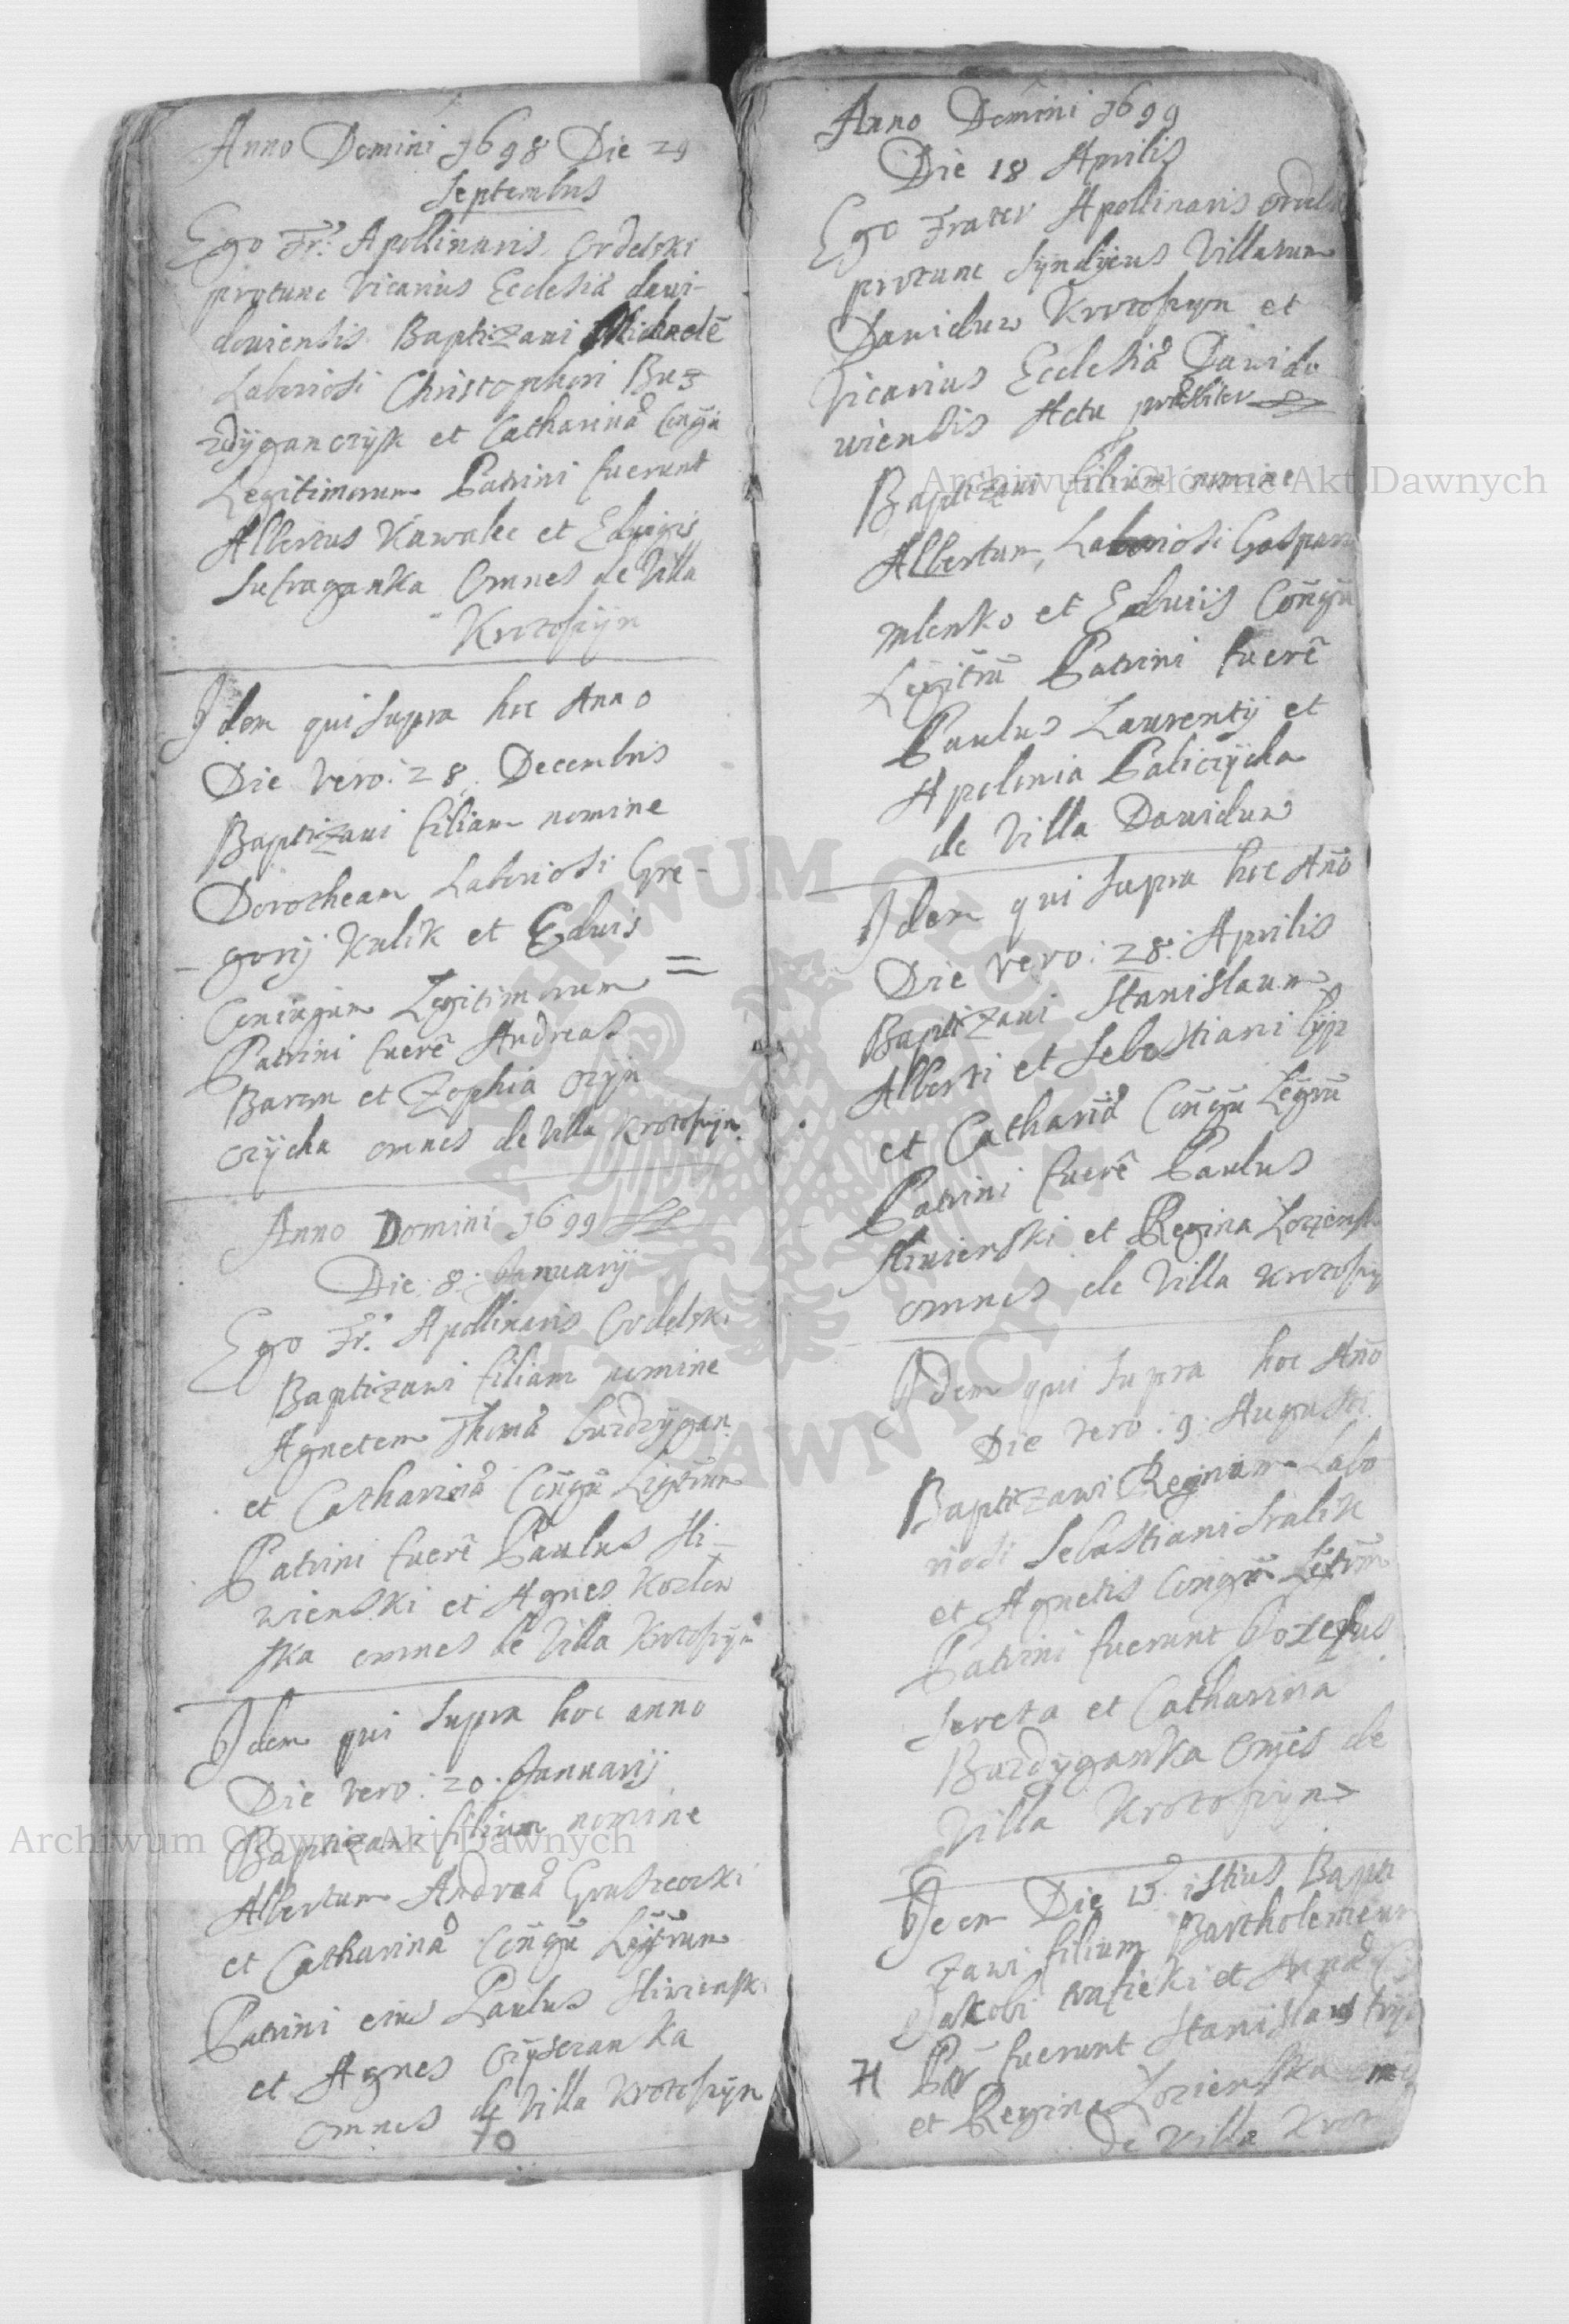 Anno Domini 1698 Die 29
Septembris
Ego Fr. Apollinaris Ordelski
protunc Vicarius Ecclesiæ davi-
doviensis Baptizavi Michaelē
Laboriosi Christopheri Buz
et Catharinæ Congū
Legitimorum Patrini fuerunt
Albertus Kawalec et Eduigis
Sufraganka Omnes de Villa
Krotoszyn
Idem qui supra hoc Anno
Die vero: 28. Decembris
Baptizaui filiam nomine
Dorotheam Laboriosi Gre-
gorij Kulik et Eduis
Coniugum Legitimorum =
Patrini fuerē Andreas
Baran et Zophia
czycha omnes de Villa Krotoszyn
Anno Domini 1699
Die 8 January
Ego Fr. Apollinaris Ordelski
Baptizawi filiam nomine
Agnetem Thomæ burdzygan
et Catharinæ Coñgū Ligtrum
Patrini fuerē Paulus Sli-
wienski et Agnes Kozlow
ska omnes de Villa Krotoszyn
Idem qui supra hoc anno
Die vero: 20. Januarij
Baptizawi filium nomine
Albertum Andreæ
et Catharinæ Coñgū Legtrum
Patrini eius Paulus Sliwiensk
et Agnes
omnes de Villa Krotoszyn
70
Anno Domini 1699
Die 18 Aprilis
Ego Frater Apollinaris Ordels
protunc Syndicus Villarum
Daviduw Krotoszyn et
Vicarius Ecclesiæ Dawido
wiensis Actu præsbiter
Baptizavi filium nomine
Albertum, Laboriosi Gaspari
mlenko et Eduiis Coñgū
Legitrū Patrini fuerē
Paulus Laurentij et
Apolonia Paliczycha
de Villa Dawiduw
Idem qui supra hoc Año
Die vero: 28: Aprilis
Baptizaui Stanislaum
Alberti et Sebestiani
et Catharinæ Coñgū Legrū
Patrini fuerē Paulus
Sliwienski et Regina Loziensk
omnes de Villa Krotoszy
Idem qui supra hoc Año
Die vero: 9: Augusti
Baptizawi Reginam Labo
riosi Sebastiani
et Agnetis Congū Legtrm
Patrini fuerunt Jozephus
Sereta et Catharina
Burdyganka Om̃es de
Villa Krotoszyn
Item Die 15. istius Bapti
zawi filium Bartholomeum
Jakobi et Annæ
fuerunt Stanislaus
71
et Regina Lozienska
De Villa Krot
Archiwum Główne Akt Dawnych
Archiwum Główne Akt Dawnych
ARCHIWUM GŁÓWNE AKT DAWNYCH